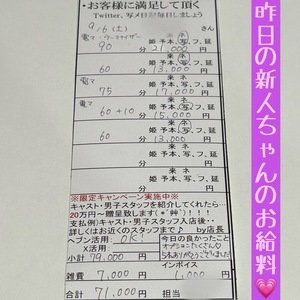 ・お客様に満足して頂く
Twitter、写メ日記毎日しましょう
9/6(土) さん
電マ・
来 ネ
90 姫 予 本、写、フ、延
分 21,000 円
来 ネ
60 姫 予 本、写、フ、延
分 13,000 円
電マ 来 ネ
75 姫 予 本、写、フ、延
分 17,000 円
電マ 来 ネ
60+10 姫 予 本、写、フ、延
分 15,000 円
来 ネ
60 姫 予 本、写、フ、延
分 13,000 円
※限定キャンペーン実施中※
キャスト・男子スタッフを紹介してくれたら…
20万円〜贈呈致します(*´艸`)!!!
支払例)キャスト・男子スタッフ入店後・・
詳しくはお近くのスタッフまで♪ by店長
ヘブン活用： OK!
X活用：
今日の良かったこと
小計 79,000 円
雑費 7,000 円
インボイス
1,000 円
合計 71,000 円
担当
昨日の新人ちゃんのお給料💗